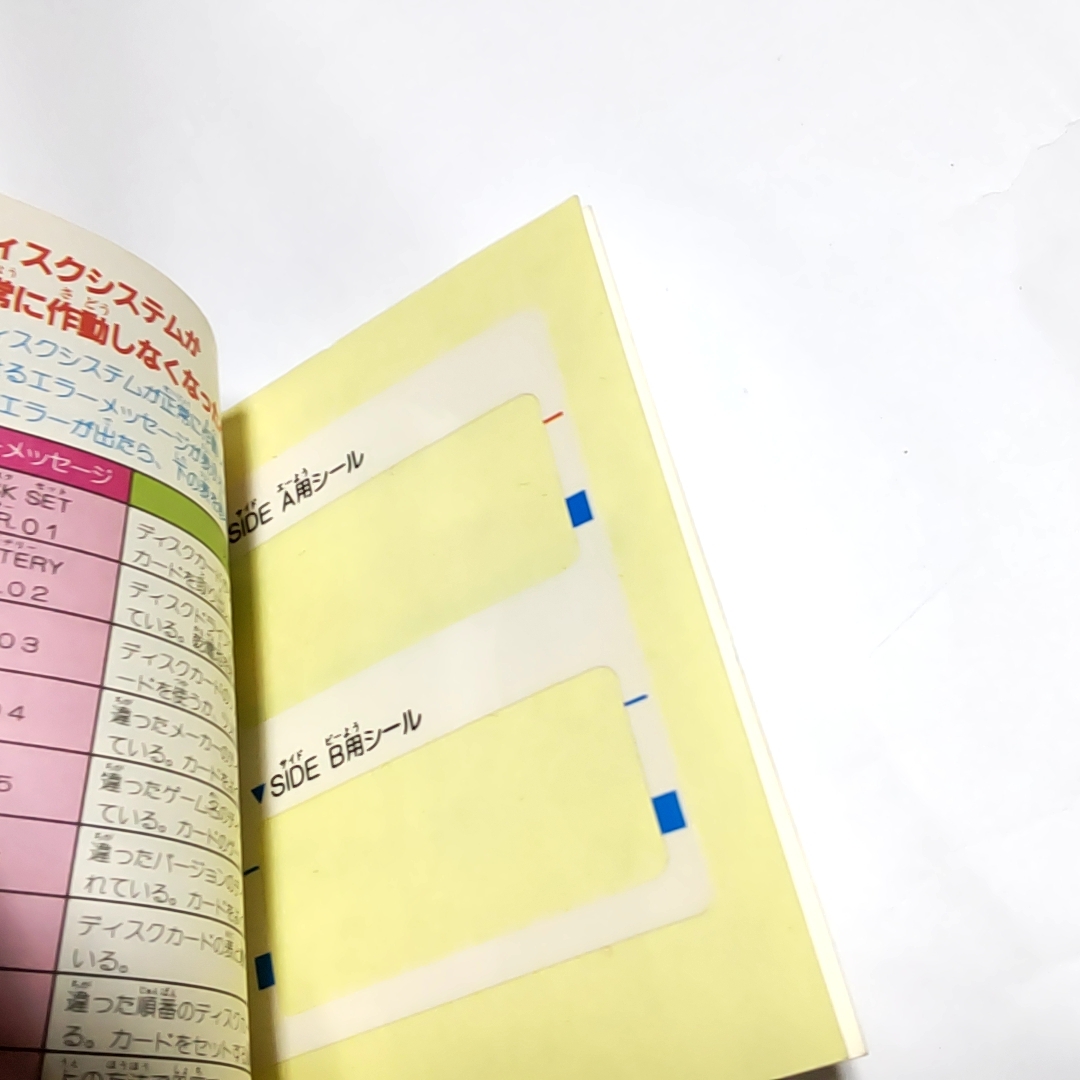 ィスクシステムが
常に作動しなくなった
ィスクシステムが正常に
するエラーメッセージが
エラーが出たら、下の表を
メッセージ
K SET
R.01
ディスクカードが
カードを
TTERY
.02
ディスクドライ
ている。
03
ディスクカードの
ードを使うか、
04
違ったメーカーの
ている。カードを
5
違ったゲーム名の
ている。カードの
違ったバージョンの
れている。カードを
ディスクカードの表と
いる。
違った順番のディスク
る。カードをセットする
SIDE A用シール
▼SIDE B用シール